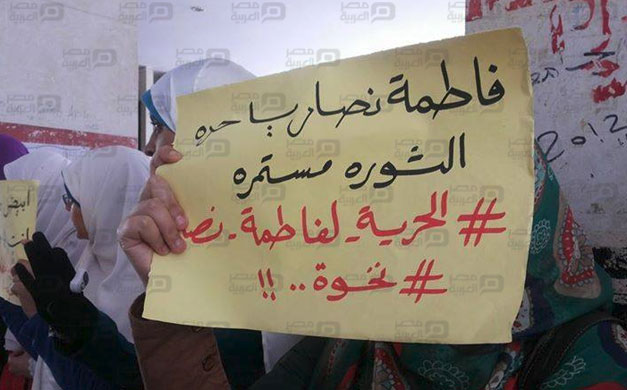 فاطمة نصار يا حره
الثوره مستمره
#الحرية_لفاطمة_نصـ
#نخوة..!!
2012
مصر العربية